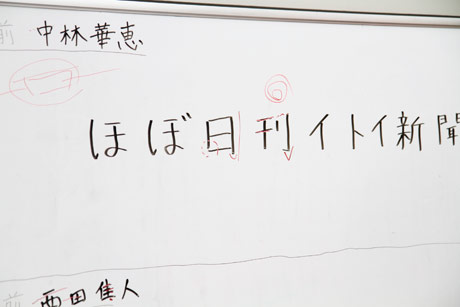 前 中林華恵
ほぼ日刊イトイ新聞
前 西田隼人